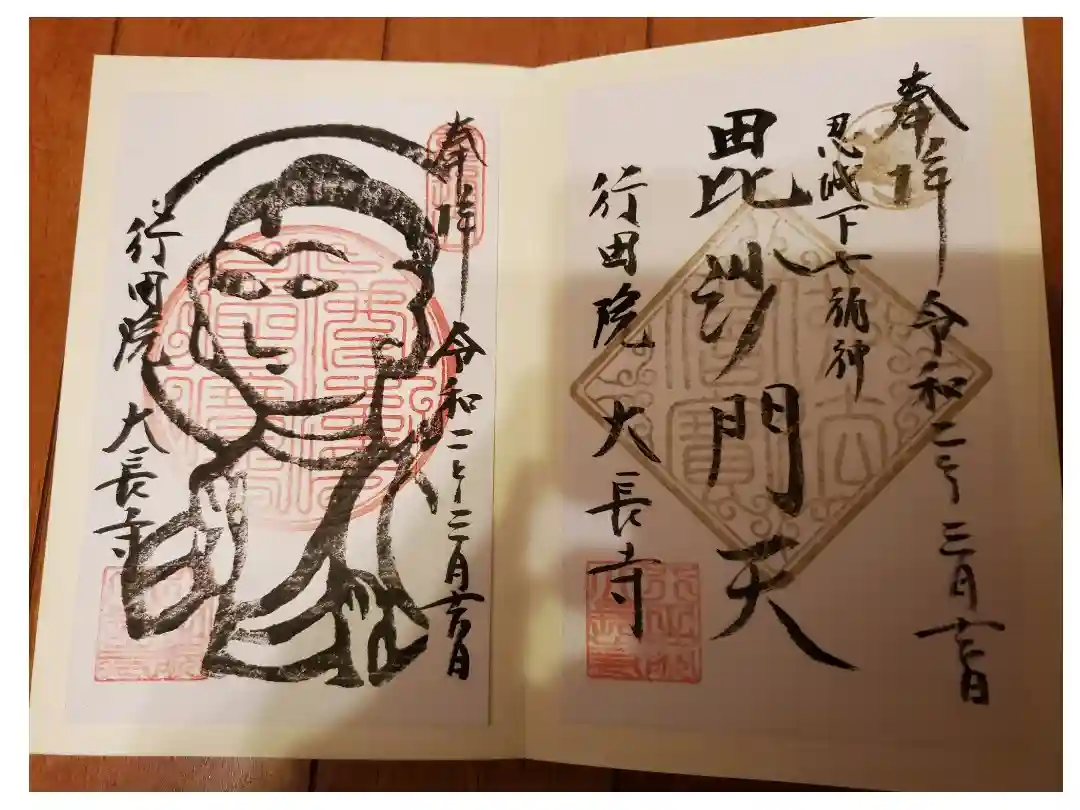 奉拝 令和二年三月吉日
忍城下七福神
毘沙門天
行田院 大長寺
奉拝 令和二年二月吉日
行田院 大長寺